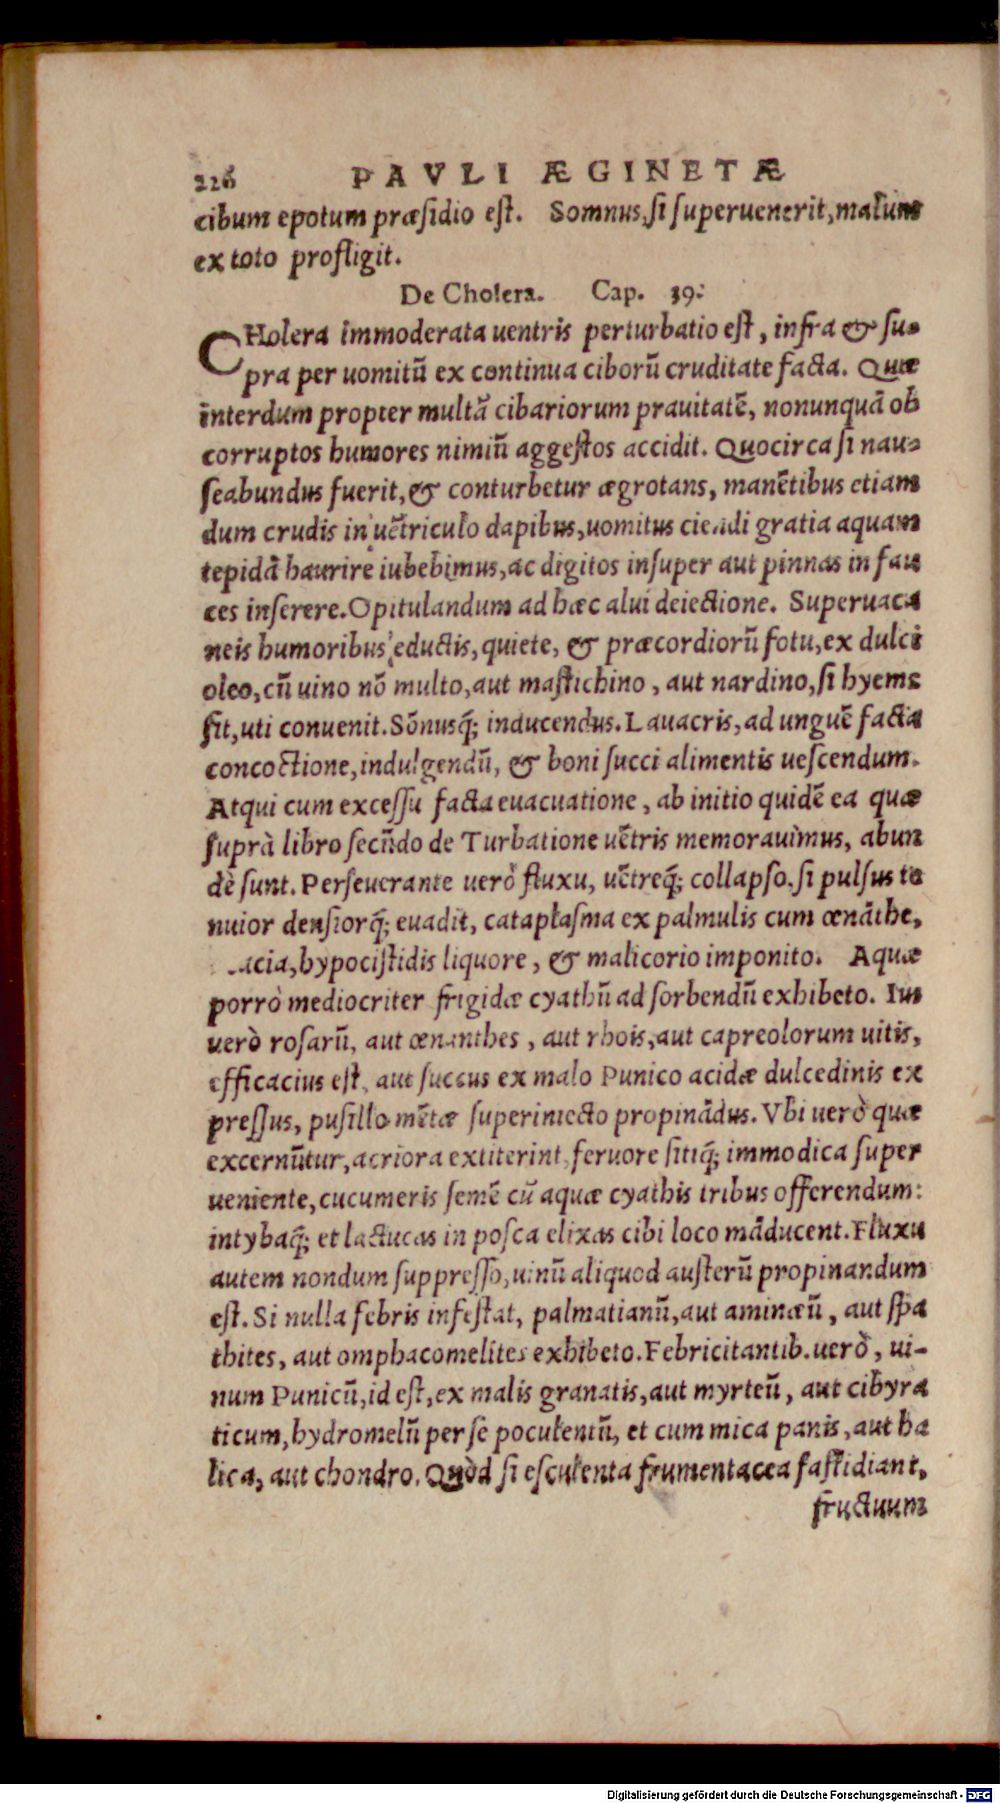 226 PAVLI ÆGINETÆ
cibum epotum præsidio est. Somnus, si superuenerit, malum
ex toto profligit.
De Cholera. Cap. 39.
CHolera immoderata uentris perturbatio est, infra & su-
pra per uomitū ex continua ciborū cruditate facta. Quæ
interdum propter multā cibariorum prauitatē, nonunquā ob
corruptos humores nimiū aggestos accidit. Quocirca si nau-
seabundus fuerit, & conturbetur ægrotans, manētibus etiam
dum crudis in uētriculo dapibus, uomitus ciendi gratia aquam
tepidā haurire iubebimus, ac digitos insuper aut pinnas in fau
ces inserere. Opitulandum ad hæc alui deiectione. Superuaca
neis humoribus eductis, quiete, & præcordiorū fotu, ex dulci
oleo, cū uino nō multo, aut mastichino, aut nardino, si hyems
sit, uti conuenit. Sōnusq́; inducendus. Lauacris, ad unguē facta
concoctione, indulgendū, & boni succi alimentis uescendum.
Atqui cum excessu facta euacuatione, ab initio quidē ea quæ
suprà libro secūdo de Turbatione uētris memorauimus, abun
dè sunt. Perseuerante uerò fluxu, uētreq́; collapso, si pulsus te
nuior densiorq́; euadit, cataplasma ex palmulis cum œnāthe,
acacia, hypocistidis liquore, & malicorio imponito. Aquæ
porrò mediocriter frigidæ cyathū ad sorbendū exhibeto. Im
uerò rosarū, aut œnanthes, aut rhois, aut capreolorum uitis,
efficacius est, aut succus ex malo Punico acidæ dulcedinis ex
pressus, pusillo mētæ superiniecto propināḋus. Vbi uerò quæ
excernūtur, acriora extiterint, feruore sitiq́; immodica super
ueniente, cucumeris semē cū aquæ cyathis tribus offerendum:
intybaq́; et lactucas in posca elixas cibi loco māducent. Fluxu
autem nondum suppresso, uinū aliquod austerū propinandum
est. Si nulla febris infestat, palmatianū, aut aminæū, aut spa
thites, aut omphacomelites exhibeto. Febricitantib. uerò, ui-
num Punicū, id est, ex malis granatis, aut myrteū, aut cibyra
ticum, hydromelū per se poculentū, et cum mica panis, aut ha
lica, aut chondro. Quòd si esculenta frumentacea fastidiant,
fructuum
Digitalisierung gefördert durch die Deutsche Forschungsgemeinschaft - DFG